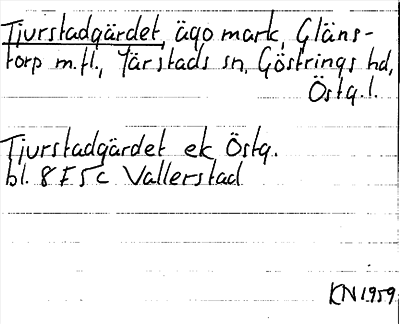 Tjurstadgärdet, ägomark, Gläns-
torp m.fl., Järstads sn, Göstrings hd,
Östg.l.
Tjurstadgärdet ek Östg.
bl. 8F5c Vallerstad
KN 1959